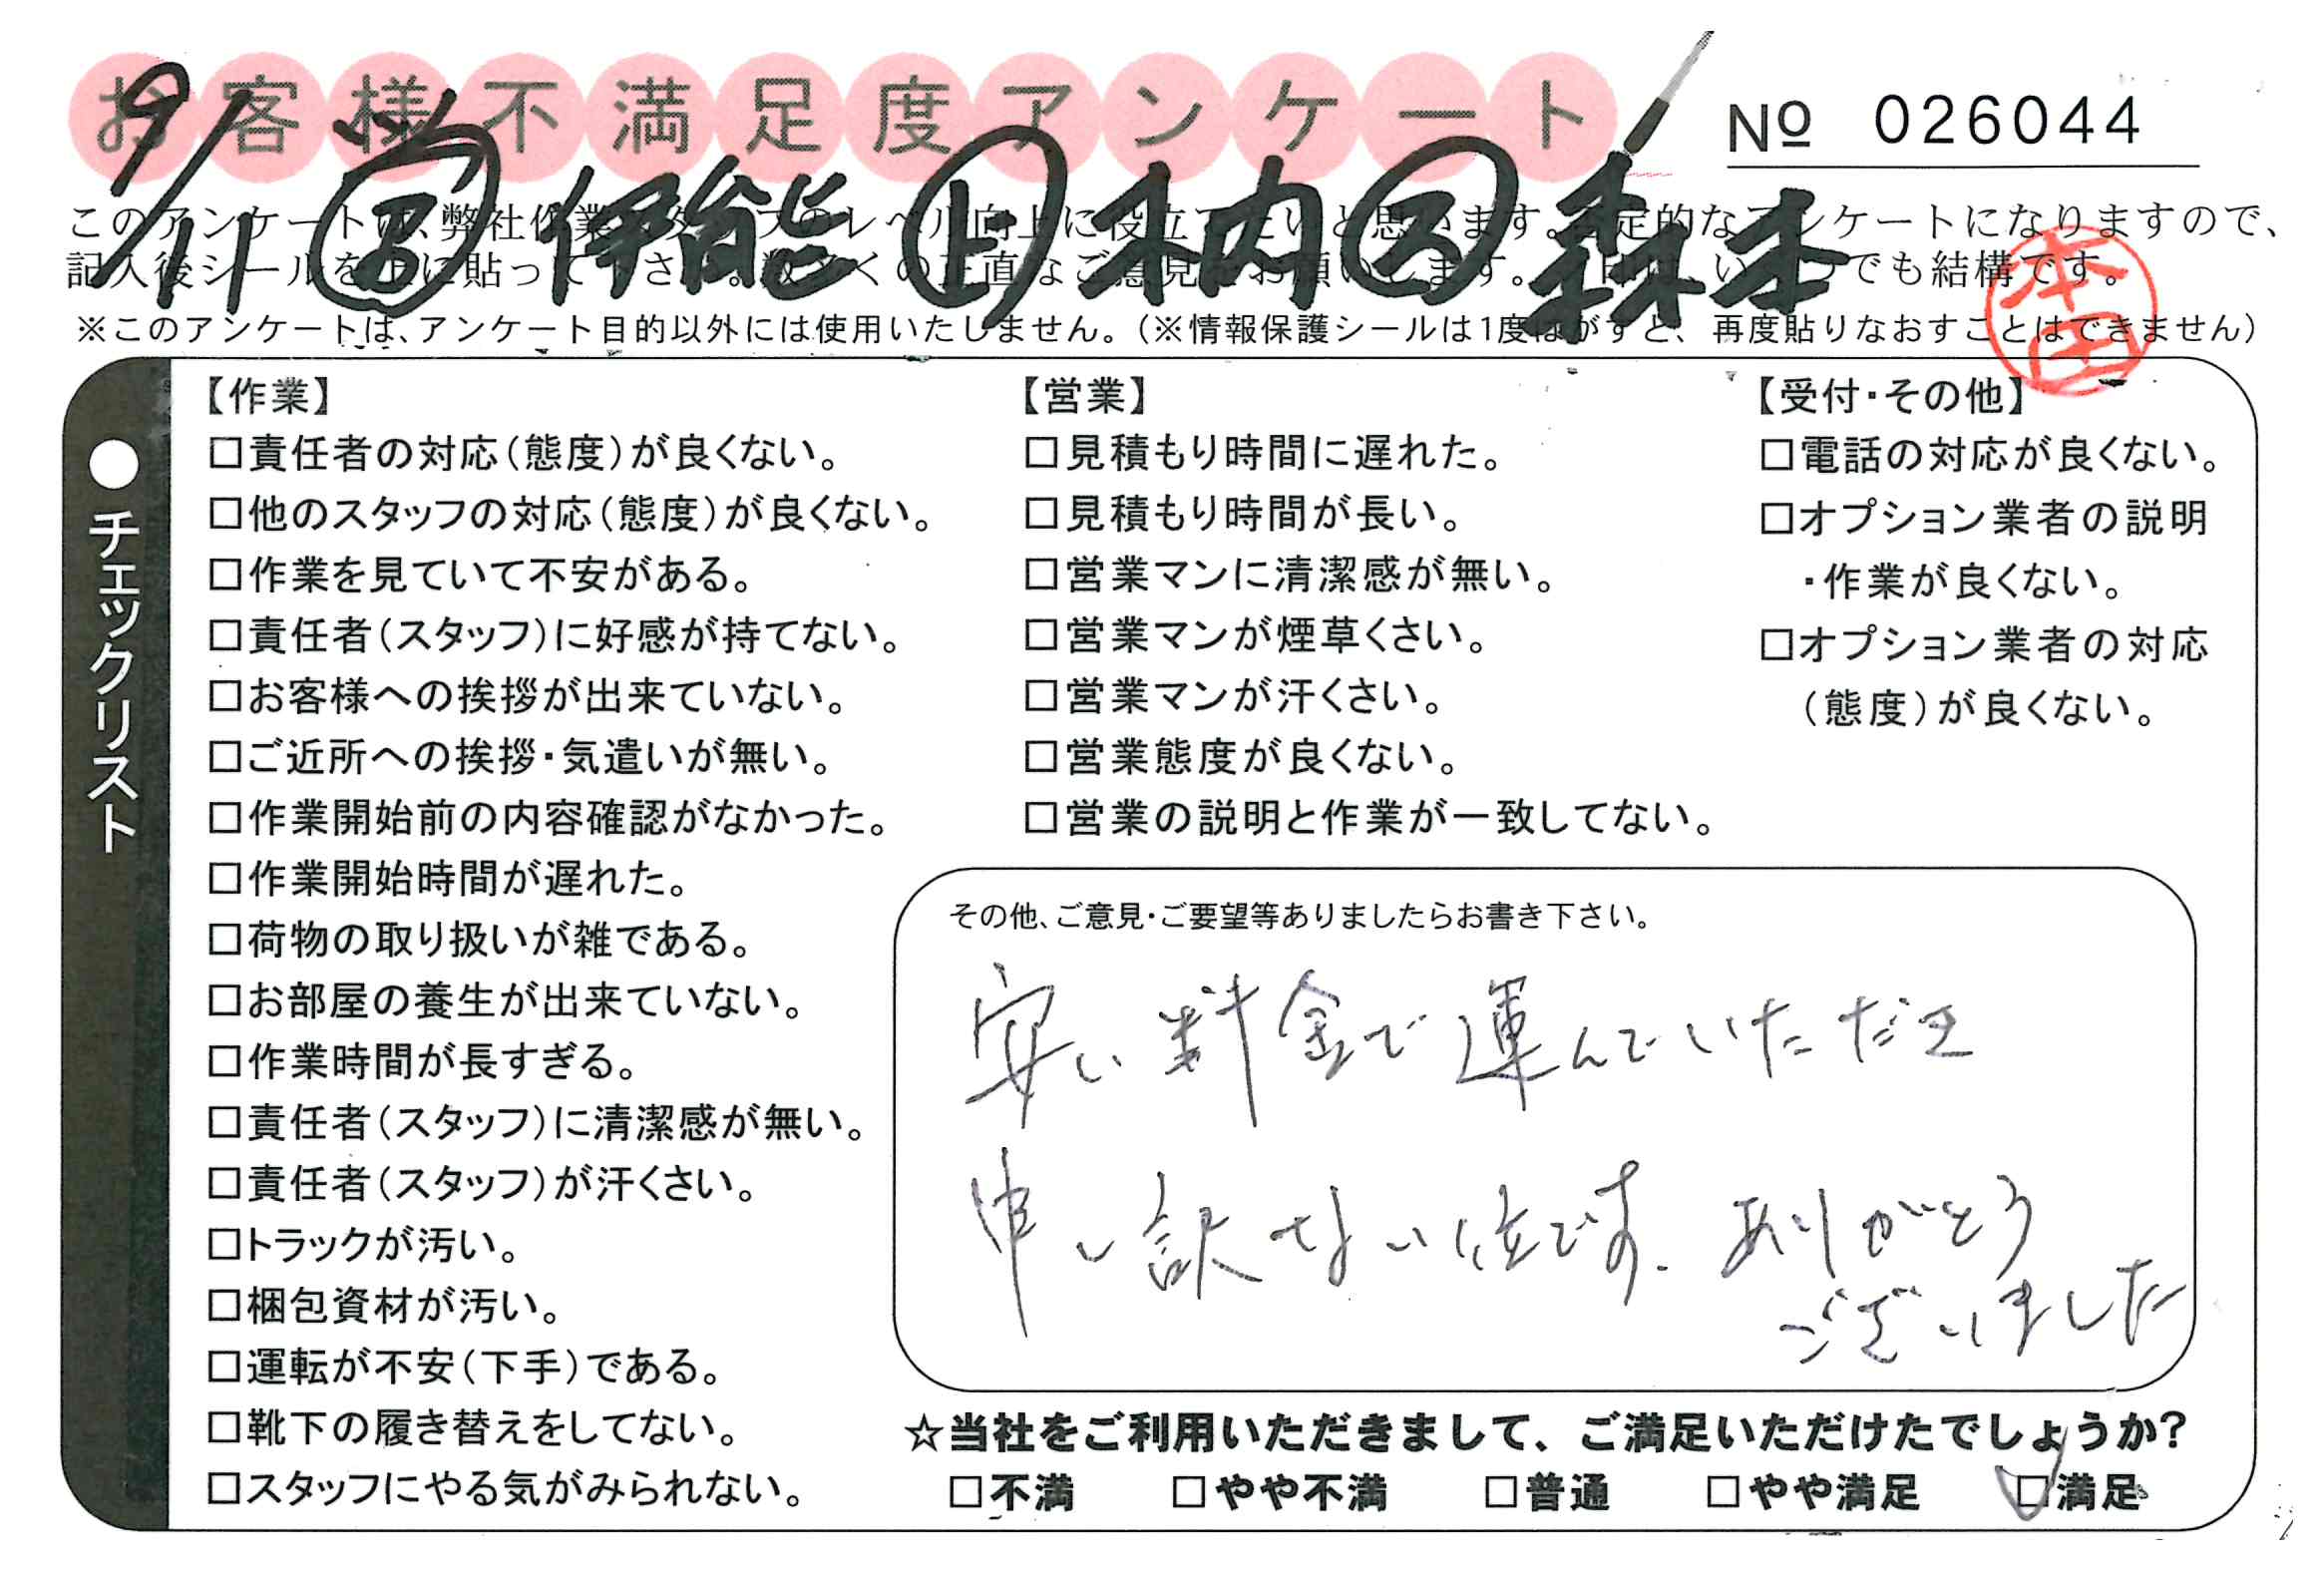 お客様不満足度アンケート
№ 026044
9/11 伊能 上 木内 森本
このアンケートは、弊社作業スタッフのレベル向上に役立てたいと思います。否定的なアンケートになりますので、
記入後シールを上に貼って下さい。数多くの正直なご意見をお願いします。 印は、いくつでも結構です。
※このアンケートは、アンケート目的以外には使用いたしません。(※情報保護シールは1度はがすと、再度貼りなおすことはできません)
本田
●チェックリスト
【作業】
□責任者の対応(態度)が良くない。
□他のスタッフの対応(態度)が良くない。
□作業を見ていて不安がある。
□責任者(スタッフ)に好感が持てない。
□お客様への挨拶が出来ていない。
□ご近所への挨拶・気遣いが無い。
□作業開始前の内容確認がなかった。
□作業開始時間が遅れた。
□荷物の取り扱いが雑である。
□お部屋の養生が出来ていない。
□作業時間が長すぎる。
□責任者(スタッフ)に清潔感が無い。
□責任者(スタッフ)が汗くさい。
□トラックが汚い。
□梱包資材が汚い。
□運転が不安(下手)である。
□靴下の履き替えをしてない。
□スタッフにやる気がみられない。
【営業】
□見積もり時間に遅れた。
□見積もり時間が長い。
□営業マンに清潔感が無い。
□営業マンが煙草くさい。
□営業マンが汗くさい。
□営業態度が良くない。
□営業の説明と作業が一致してない。
【受付・その他】
□電話の対応が良くない。
□オプション業者の説明
・作業が良くない。
□オプション業者の対応
(態度)が良くない。
その他、ご意見・ご要望等ありましたらお書き下さい。
安い料金で運んでいただき
申し訳ない位です。ありがとう
ございました
☆当社をご利用いただきまして、ご満足いただけたでしょうか?
□不満 □やや不満 □普通 □やや満足 ☑満足